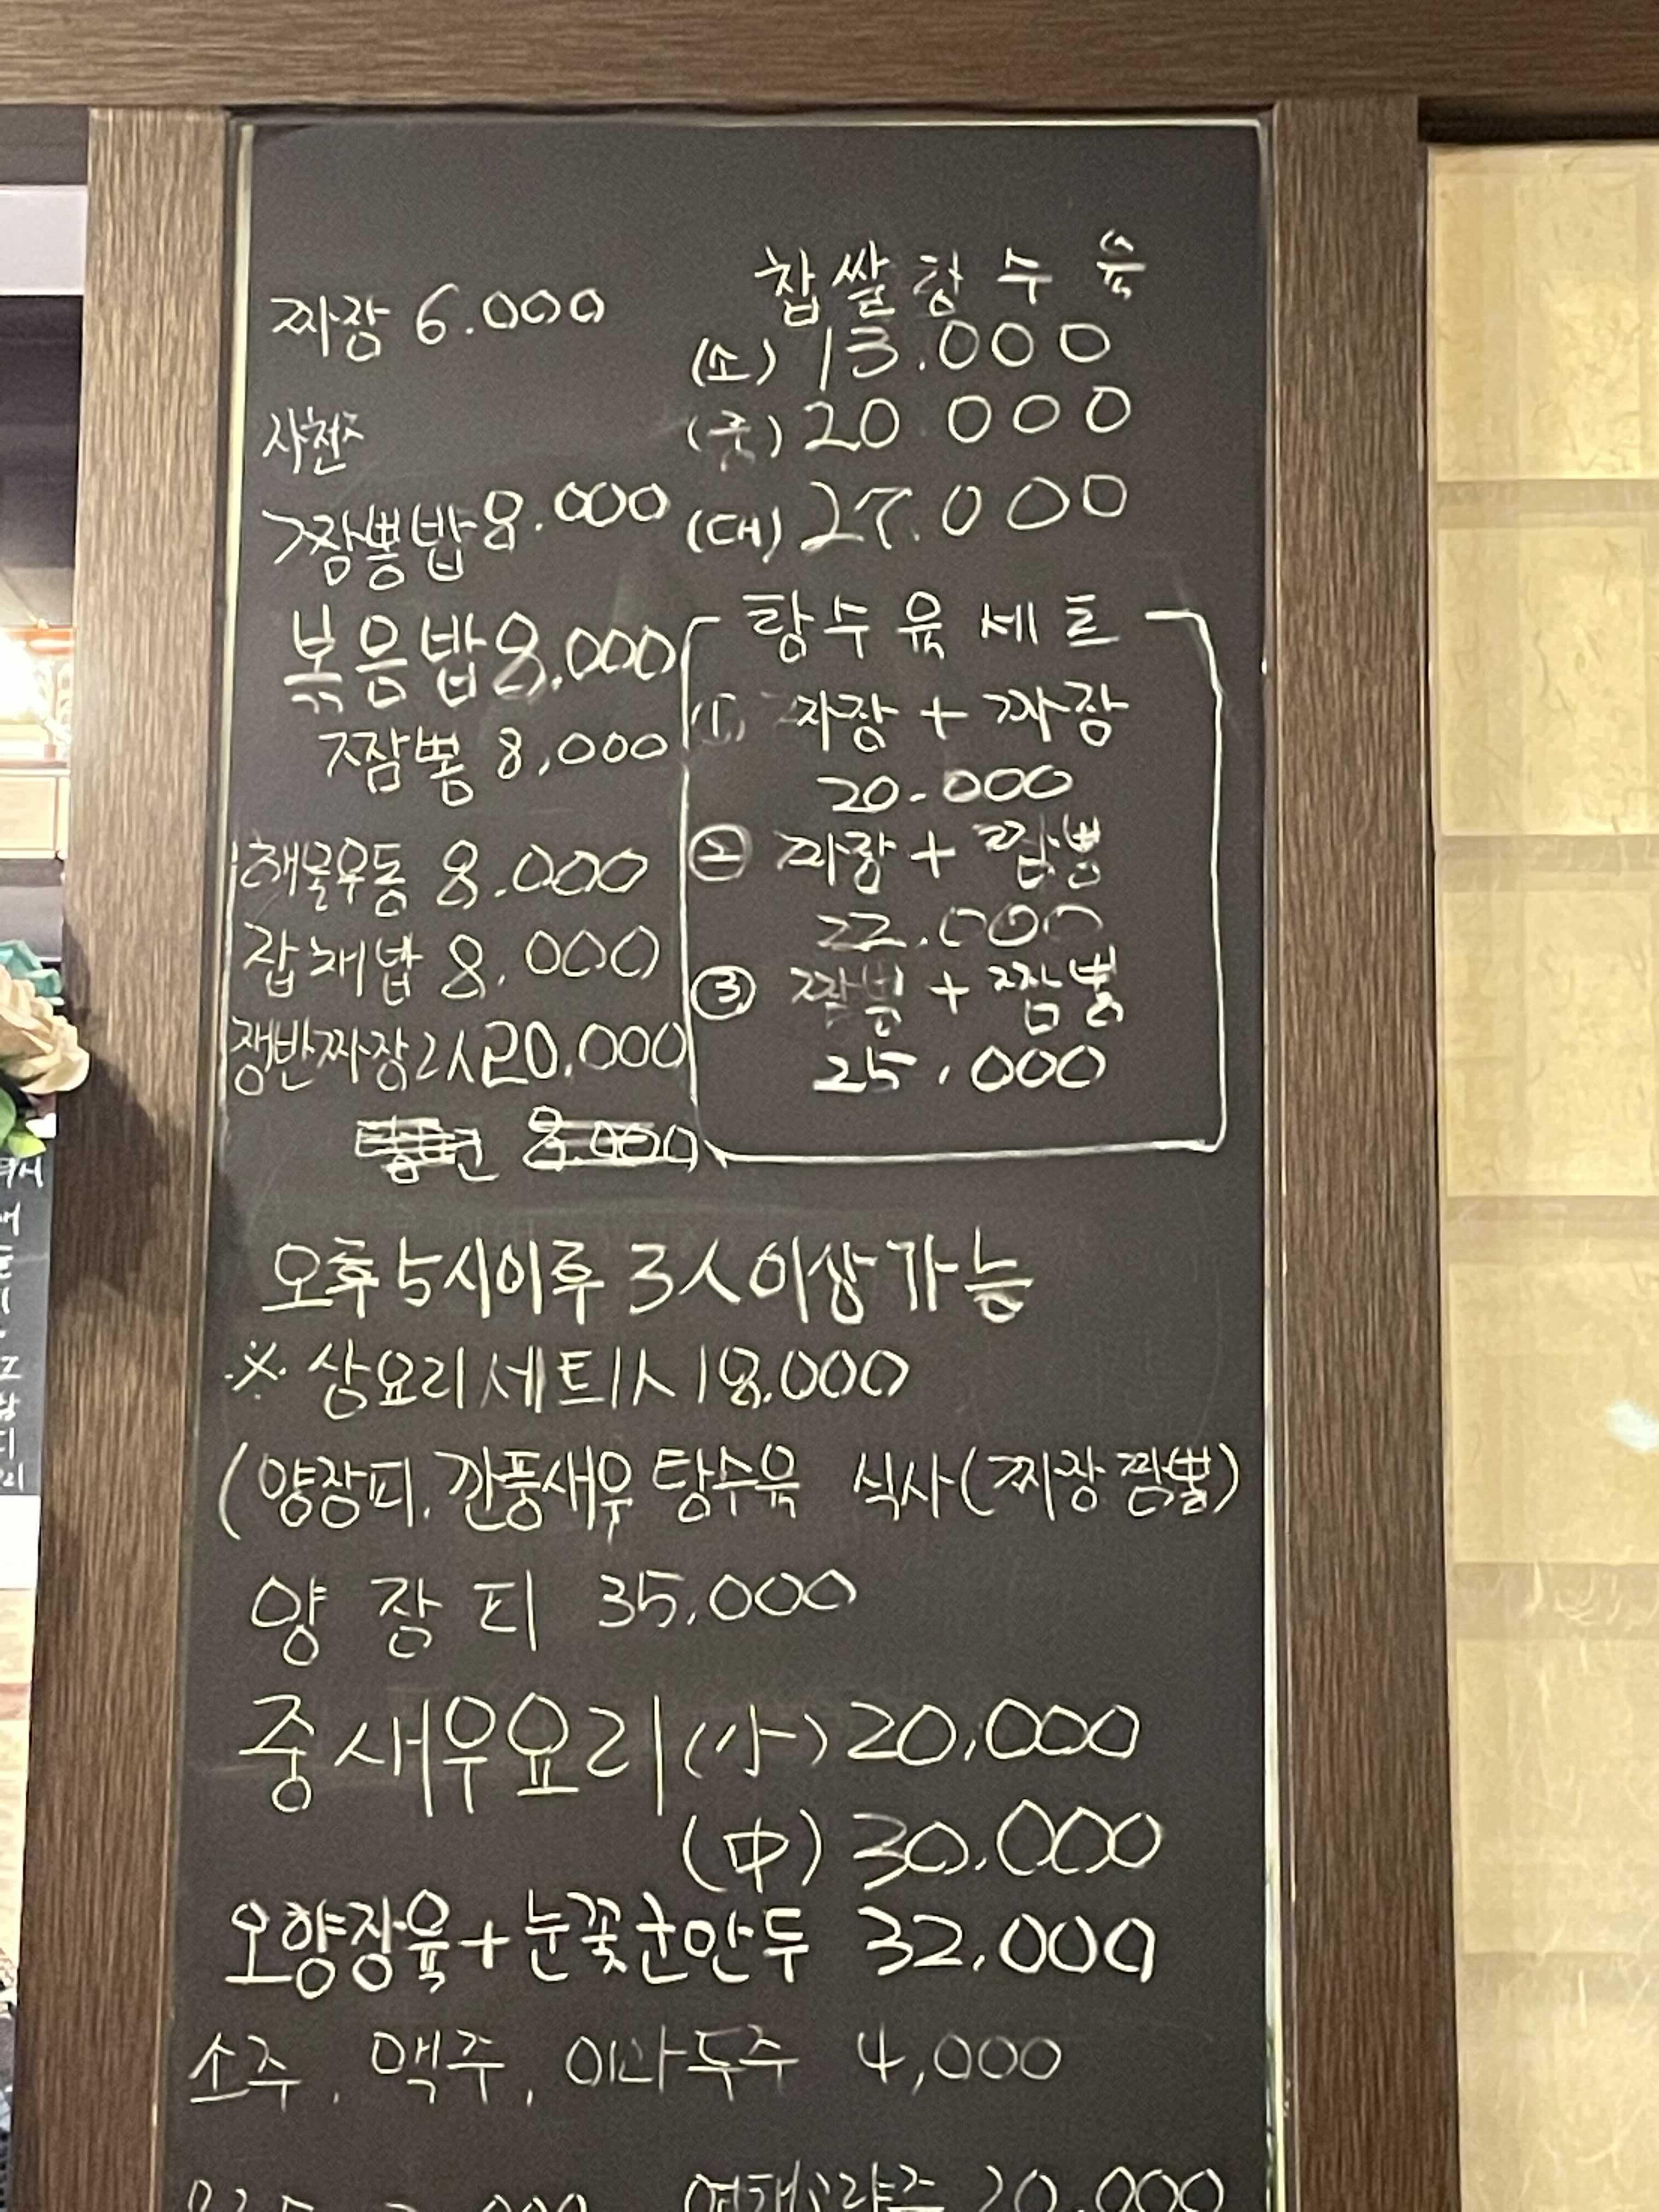 짜장 6.000
사천
짬뽕밥 8.000
볶음밥 8,000
짬뽕 8,000
해물우동 8.000
잡채밥 8,000
쟁반짜장 2人 20,000
8.000
찹쌀탕수육
(소) 13.000
(중) 20.000
(대) 27.000
탕수육세트
① 짜장 + 짜장
20.000
② 짜장 + 짬뽕
22.000
③ 짬뽕 + 짬뽕
25,000
오후 5시이후 3人이상가능
※ 상요리세트 1人 18,000
(양장피, 깐풍새우 탕수육 식사(짜장 짬뽕)
양장피 35,000
중새우요리 (小) 20,000
(中) 30,000
오향장육+눈꽃군만두 32,000
소주, 맥주, 이과두주 4,000
연태고량주 20,000